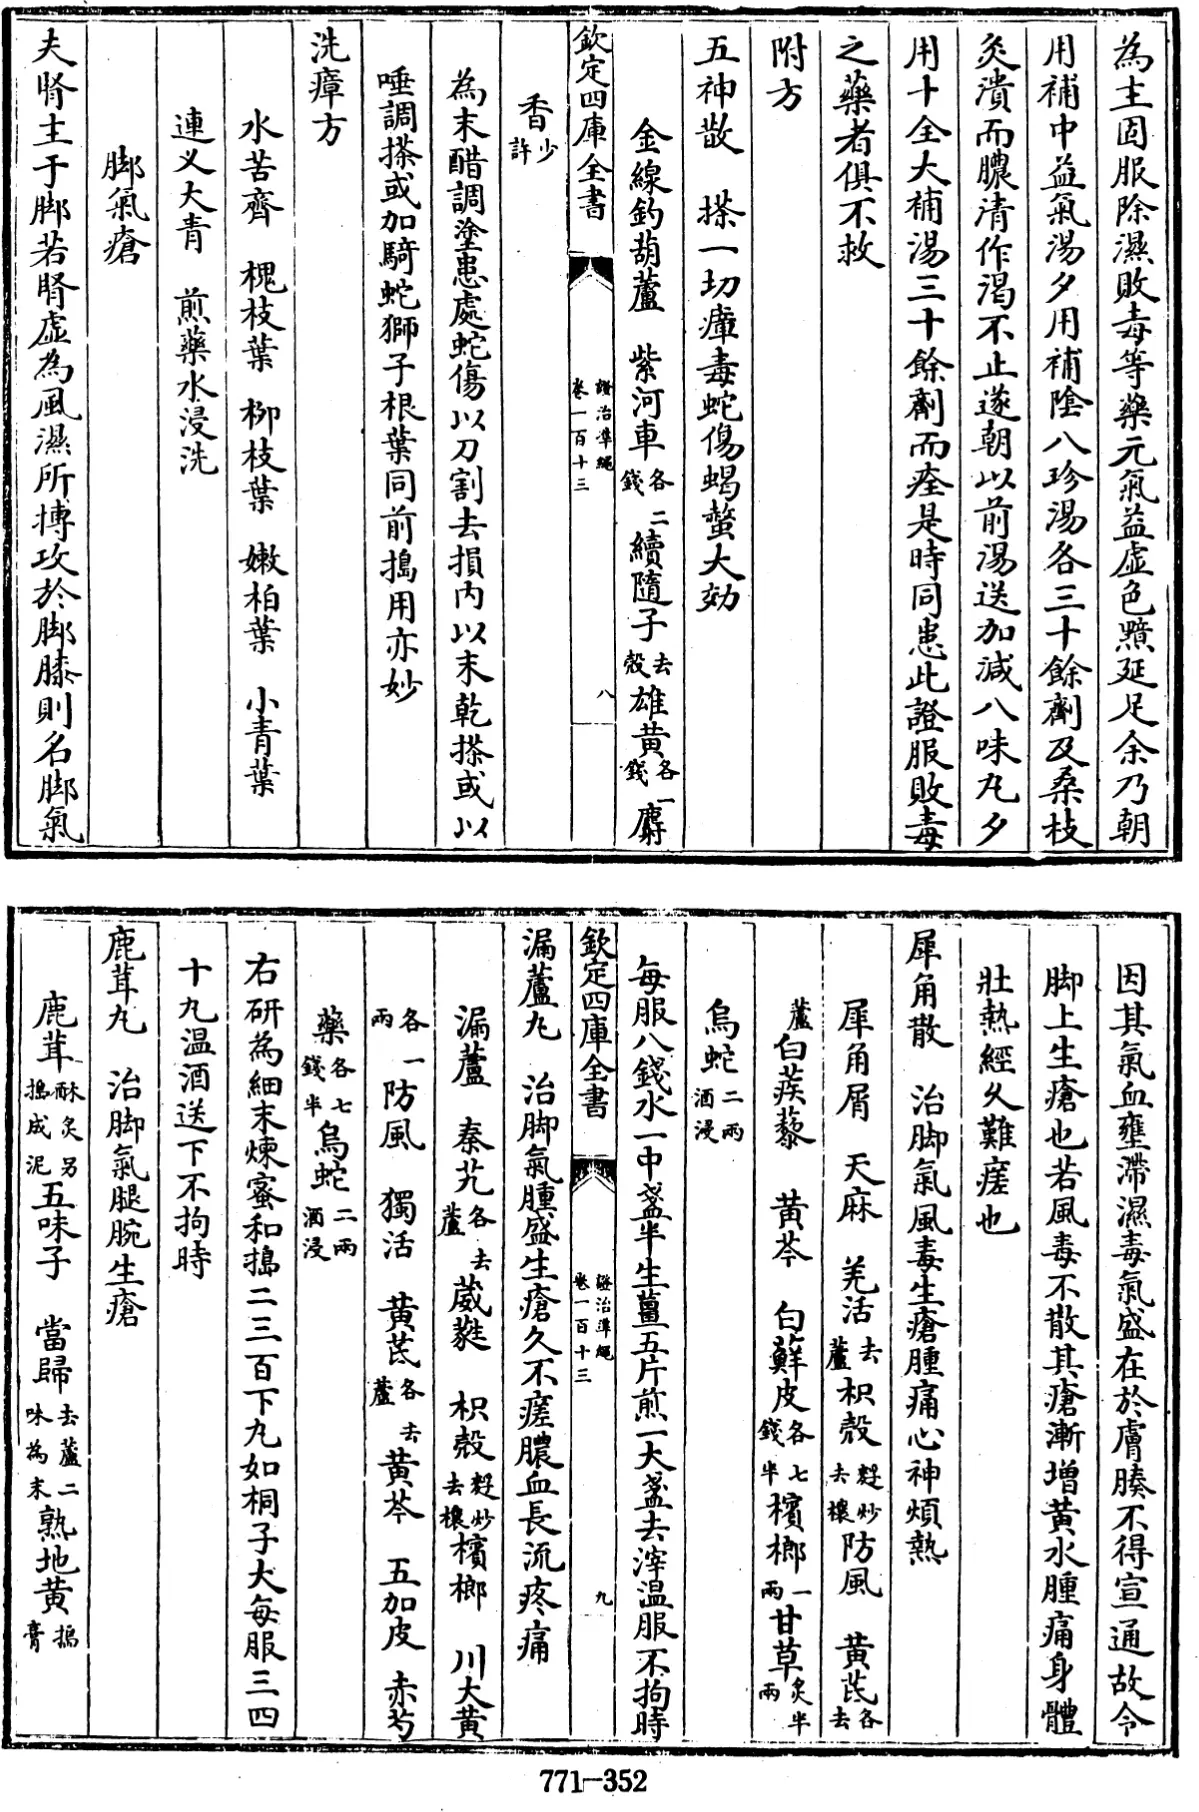 為主固服除濕敗毒等藥元氣益虛色黯延足余乃朝
用補中益氣湯夕用補陰八珍湯各三十餘劑及桑枝
灸潰而膿清作渴不止遂朝以前湯送加減八味丸夕
用十全大補湯三十餘劑而痊是時同患此證服敗毒
之藥者俱不救
附方
五神散 搽一切瘴毒蛇傷蝎螫大効
金線釣葫蘆 紫河車各二錢 續隨子去殼 雄黃各一錢 麝
欽定四庫全書 證治準繩 卷一百十三 八
香少許
為末醋調塗患處蛇傷以刀割去損内以末乾搽或以
唾調搽或加騎蛇獅子根葉同前搗用亦妙
洗瘴方
水苦齊 槐枝葉 柳枝葉 嫩柏葉 小青葉
連义大青 煎藥水浸洗
脚氣瘡
夫腎主于脚若腎虛為風濕所搏攻於脚膝則名脚氣
因其氣血壅滯濕毒氣盛在於膚腠不得宣通故令
脚上生瘡也若風毒不散其瘡漸增黃水腫痛身體
壯熱經久難瘥也
犀角散 治脚氣風毒生瘡腫痛心神煩熱
犀角屑 天麻 羌活去蘆 枳殼麩炒去穰 防風 黃芪各去
蘆 白蒺藜 黃芩 白蘚皮各七錢半 檳榔一兩 甘草炙半兩
烏蛇二兩酒浸
每服八錢水一中盞半生薑五片煎一大盞去滓温服不拘時
欽定四庫全書 證治準繩 卷一百十三 九
漏蘆丸 治脚氣腫盛生瘡久不瘥膿血長流疼痛
漏蘆 秦艽各去蘆 葳蕤 枳殼麩炒去穰 檳榔 川大黃
各一兩 防風 獨活 黃芪各去蘆 黃芩 五加皮 赤芍
藥各七錢半 烏蛇二兩酒浸
右研為細末煉蜜和搗二三百下丸如桐子大每服三四
十丸温酒送下不拘時
鹿茸丸 治脚氣腿腕生瘡
鹿茸酥炙另搗成泥 五味子 當歸去蘆二味為末 熟地黃搗膏
771-352